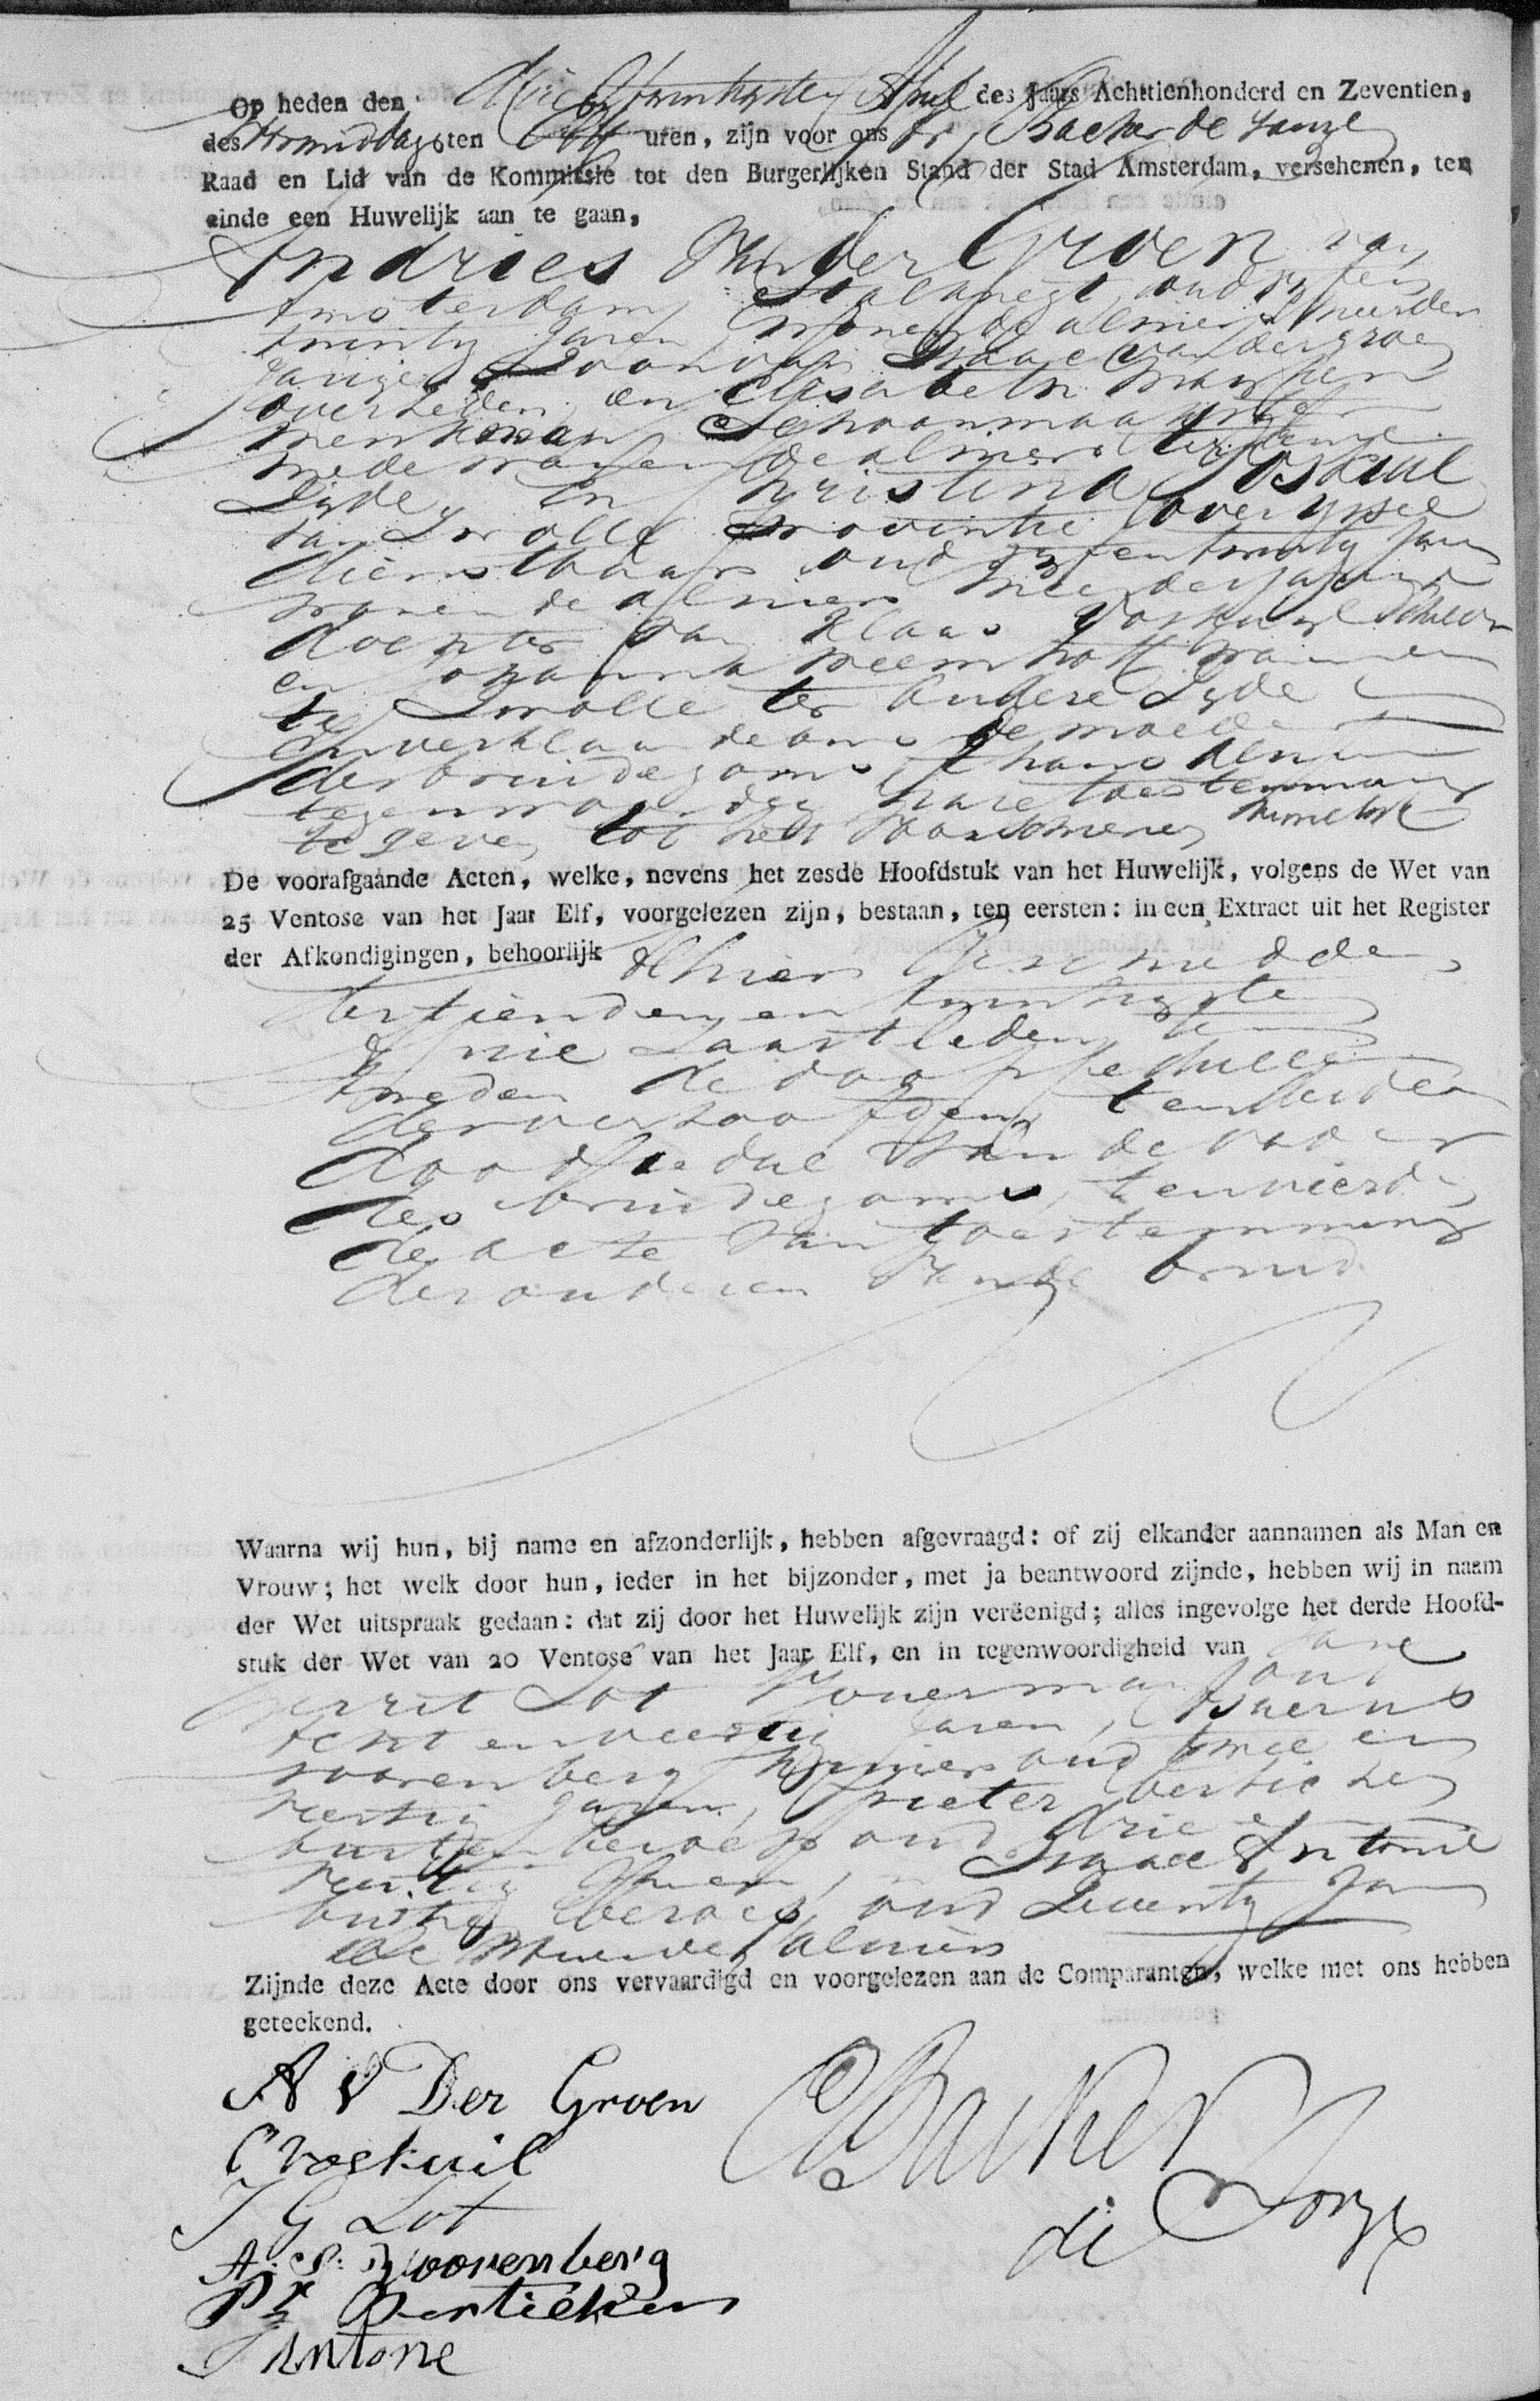 Op heden den drie en twintigsten April des Jaars Achttienhonderd en Zeventien,
des voormiddags ten Elf uren, zijn voor ons Backer de Jonge
Raad en Lid van de Kommissie tot den Burgerlijken Stand der Stad Amsterdam, verschenen, ten
einde een Huwelijk aan te gaan,
Andries Van der Groen van
Amsterdam, Stalknegt, oud
twintig Jaren, wonende alhier, meerder
jarige Zoon van Isaac van der Groen
overleden, en Elisabeth
Schoonmaakster
mede wonende alhier ter Eenre
Zijde, en Christina Voskuil
van Zwolle Provintie Overijssel
dienstbaar oud en twintig Jaren
wonende alhier meerderjarige
dochter van Klaas Voskuil
en Johanna wonende
te Zwolle ter andere Zijde
en verklaarde ons de moeder
des bruidegoms, thans alhier
tegenwoordig hare toestemming
te geven tot het voorschreven Huwelijk
De voorafgaande Acten, welke, nevens het zesde Hoofdstuk van het Huwelijk, volgens de Wet van
25 Ventose van het Jaar Elf, voorgelezen zijn, bestaan, ten eersten: in een Extract uit het Register
der Afkondigingen, behoorlijk alhier Geschied den
dertienden en twintigste
laastleden, te
tweeden de doopcedulle
der verloofden, ten derden
doodcedul van de vader
des bruidegoms, ten vierde
de acte van toestemming
der ouderen van de bruid.
Waarna wij hun, bij name en afzonderlijk, hebben afgevraagd: of zij elkander aannamen als Man en
Vrouw; het welk door hun, ieder in het bijzonder, met ja beantwoord zijnde, hebben wij in naam
der Wet uitspraak gedaan: dat zij door het Huwelijk zijn vereenigd; alles ingevolge het derde Hoofd-
stuk der Wet van 20 Ventose van het Jaar Elf, en in tegenwoordigheid van Jan
Gerrit Lot oud
acht en veertig Jaren,
Noorenberg oud twee en
veertig Jaren, Pieter Bertichen
buiten beroep oud drie en
veertig Jaren, Isaac Antone
buiten beroep, oud Zeventig Jaren
alle wonende alhier
Zijnde deze Acte door ons vervaardigd en voorgelezen aan de Comparanten, welke met ons hebben
geteekend.
A V Der Groen
C Voskuil
J G Lot
A: P: Noorenberg
Pr Bertichen
J Antone
C Backer
de Jonge